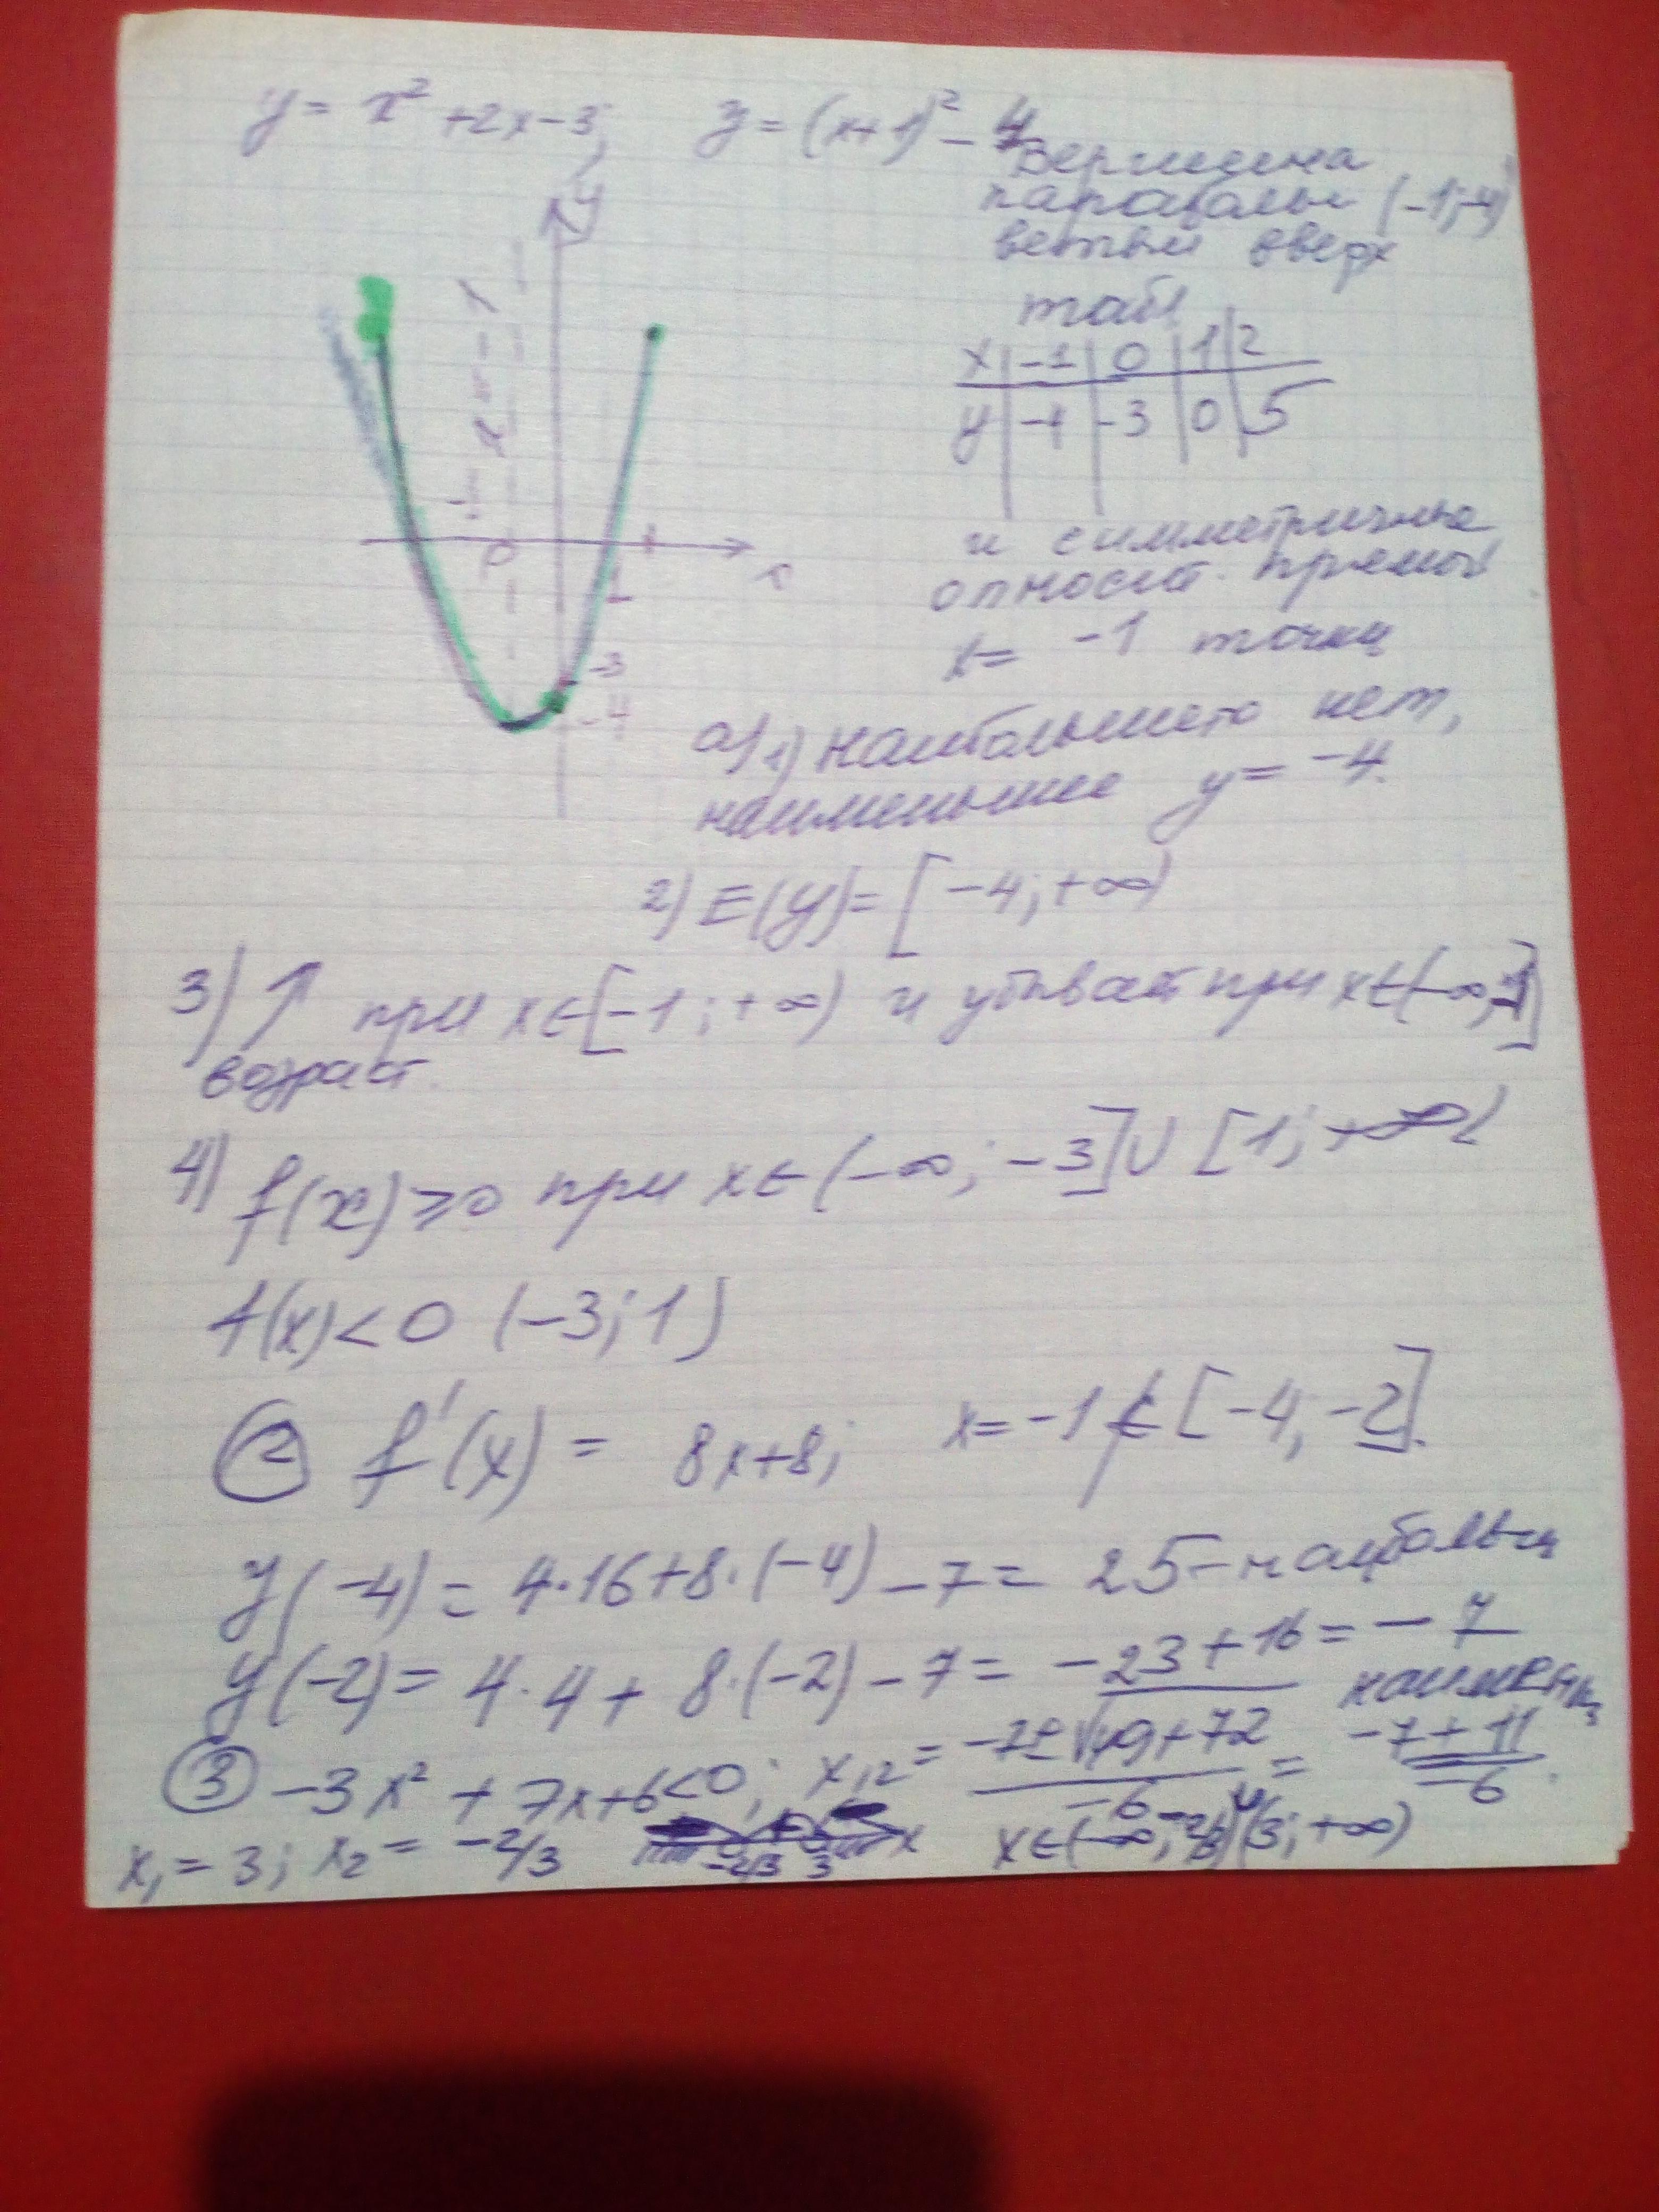 y = x² + 2x - 3; y = (x+1)² - 4
Вершина
параболы (-1; -4)
ветви вверх
y
табл
x | -1 | 0 | 1 | 2
y | -4 | -3 | 0 | 5
и симметричные
относит. прямой
x = -1 точки
0
x
1
-3
-4
а) 1) наибольшего нет,
наименьшее y = -4.
2) E(y) = [-4; +∞)
3) ↑ при x∈[-1; +∞) и убывает при x∈(-∞; -1]
возраст.
4) f(x) ≥ 0 при x∈(-∞; -3]∪[1; +∞)
f(x) < 0 (-3; 1)
② f'(x) = 8x+8; x = -1 ∉ [-4; -2].
y(-4) = 4·16 + 8·(-4) - 7 = 25 - наибольш
y(-2) = 4·4 + 8·(-2) - 7 = -23 + 16 = -7
наименьш
③ -3x² + 7x + 6 < 0; x₁,₂ = (-7 ± √49+72)/-6 = (-7 ± 11)/-6.
x₁ = 3; x₂ = -2/3 -2/3 3 x x∈(-∞; -2/3)∪(3; +∞)